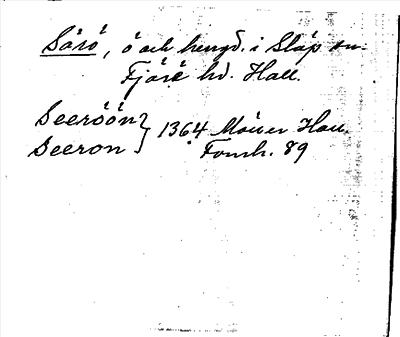 Särö, ö och hmgd. i Släp sn.
Fjäre hd. Hall.
Seeröön } 1364 Möller Hall.
Seeron } Fornh. 89